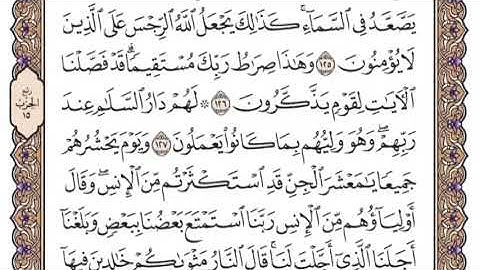 يَصَّعَّدُ فِي ٱلسَّمَآءِۚ كَذَٰلِكَ يَجْعَلُ ٱللَّهُ ٱلرِّجْسَ عَلَى ٱلَّذِينَ
لَا يُؤْمِنُونَ ١٢٥ وَهَٰذَا صِرَٰطُ رَبِّكَ مُسْتَقِيمٗاۗ قَدْ فَصَّلْنَا
ٱلْأٓيَٰتِ لِقَوْمٖ يَذَّكَّرُونَ ١٢٦ ۞ لَهُمْ دَارُ ٱلسَّلَٰمِ عِندَ
رَبِّهِمْۖ وَهُوَ وَلِيُّهُم بِمَا كَانُوا۟ يَعْمَلُونَ ١٢٧ وَيَوْمَ يَحْشُرُهُمْ
جَمِيعٗا يَٰمَعْشَرَ ٱلْجِنِّ قَدِ ٱسْتَكْثَرْتُم مِّنَ ٱلْإِنسِۖ وَقَالَ
أَوْلِيَآؤُهُم مِّنَ ٱلْإِنسِ رَبَّنَا ٱسْتَمْتَعَ بَعْضُنَا بِبَعْضٖ وَبَلَغْنَآ
أَجَلَنَا ٱلَّذِيٓ أَجَّلْتَ لَنَاۚ قَالَ ٱلنَّارُ مَثْوَىٰكُمْ خَٰلِدِينَ فِيهَآ
ربع
الحزب
١٥